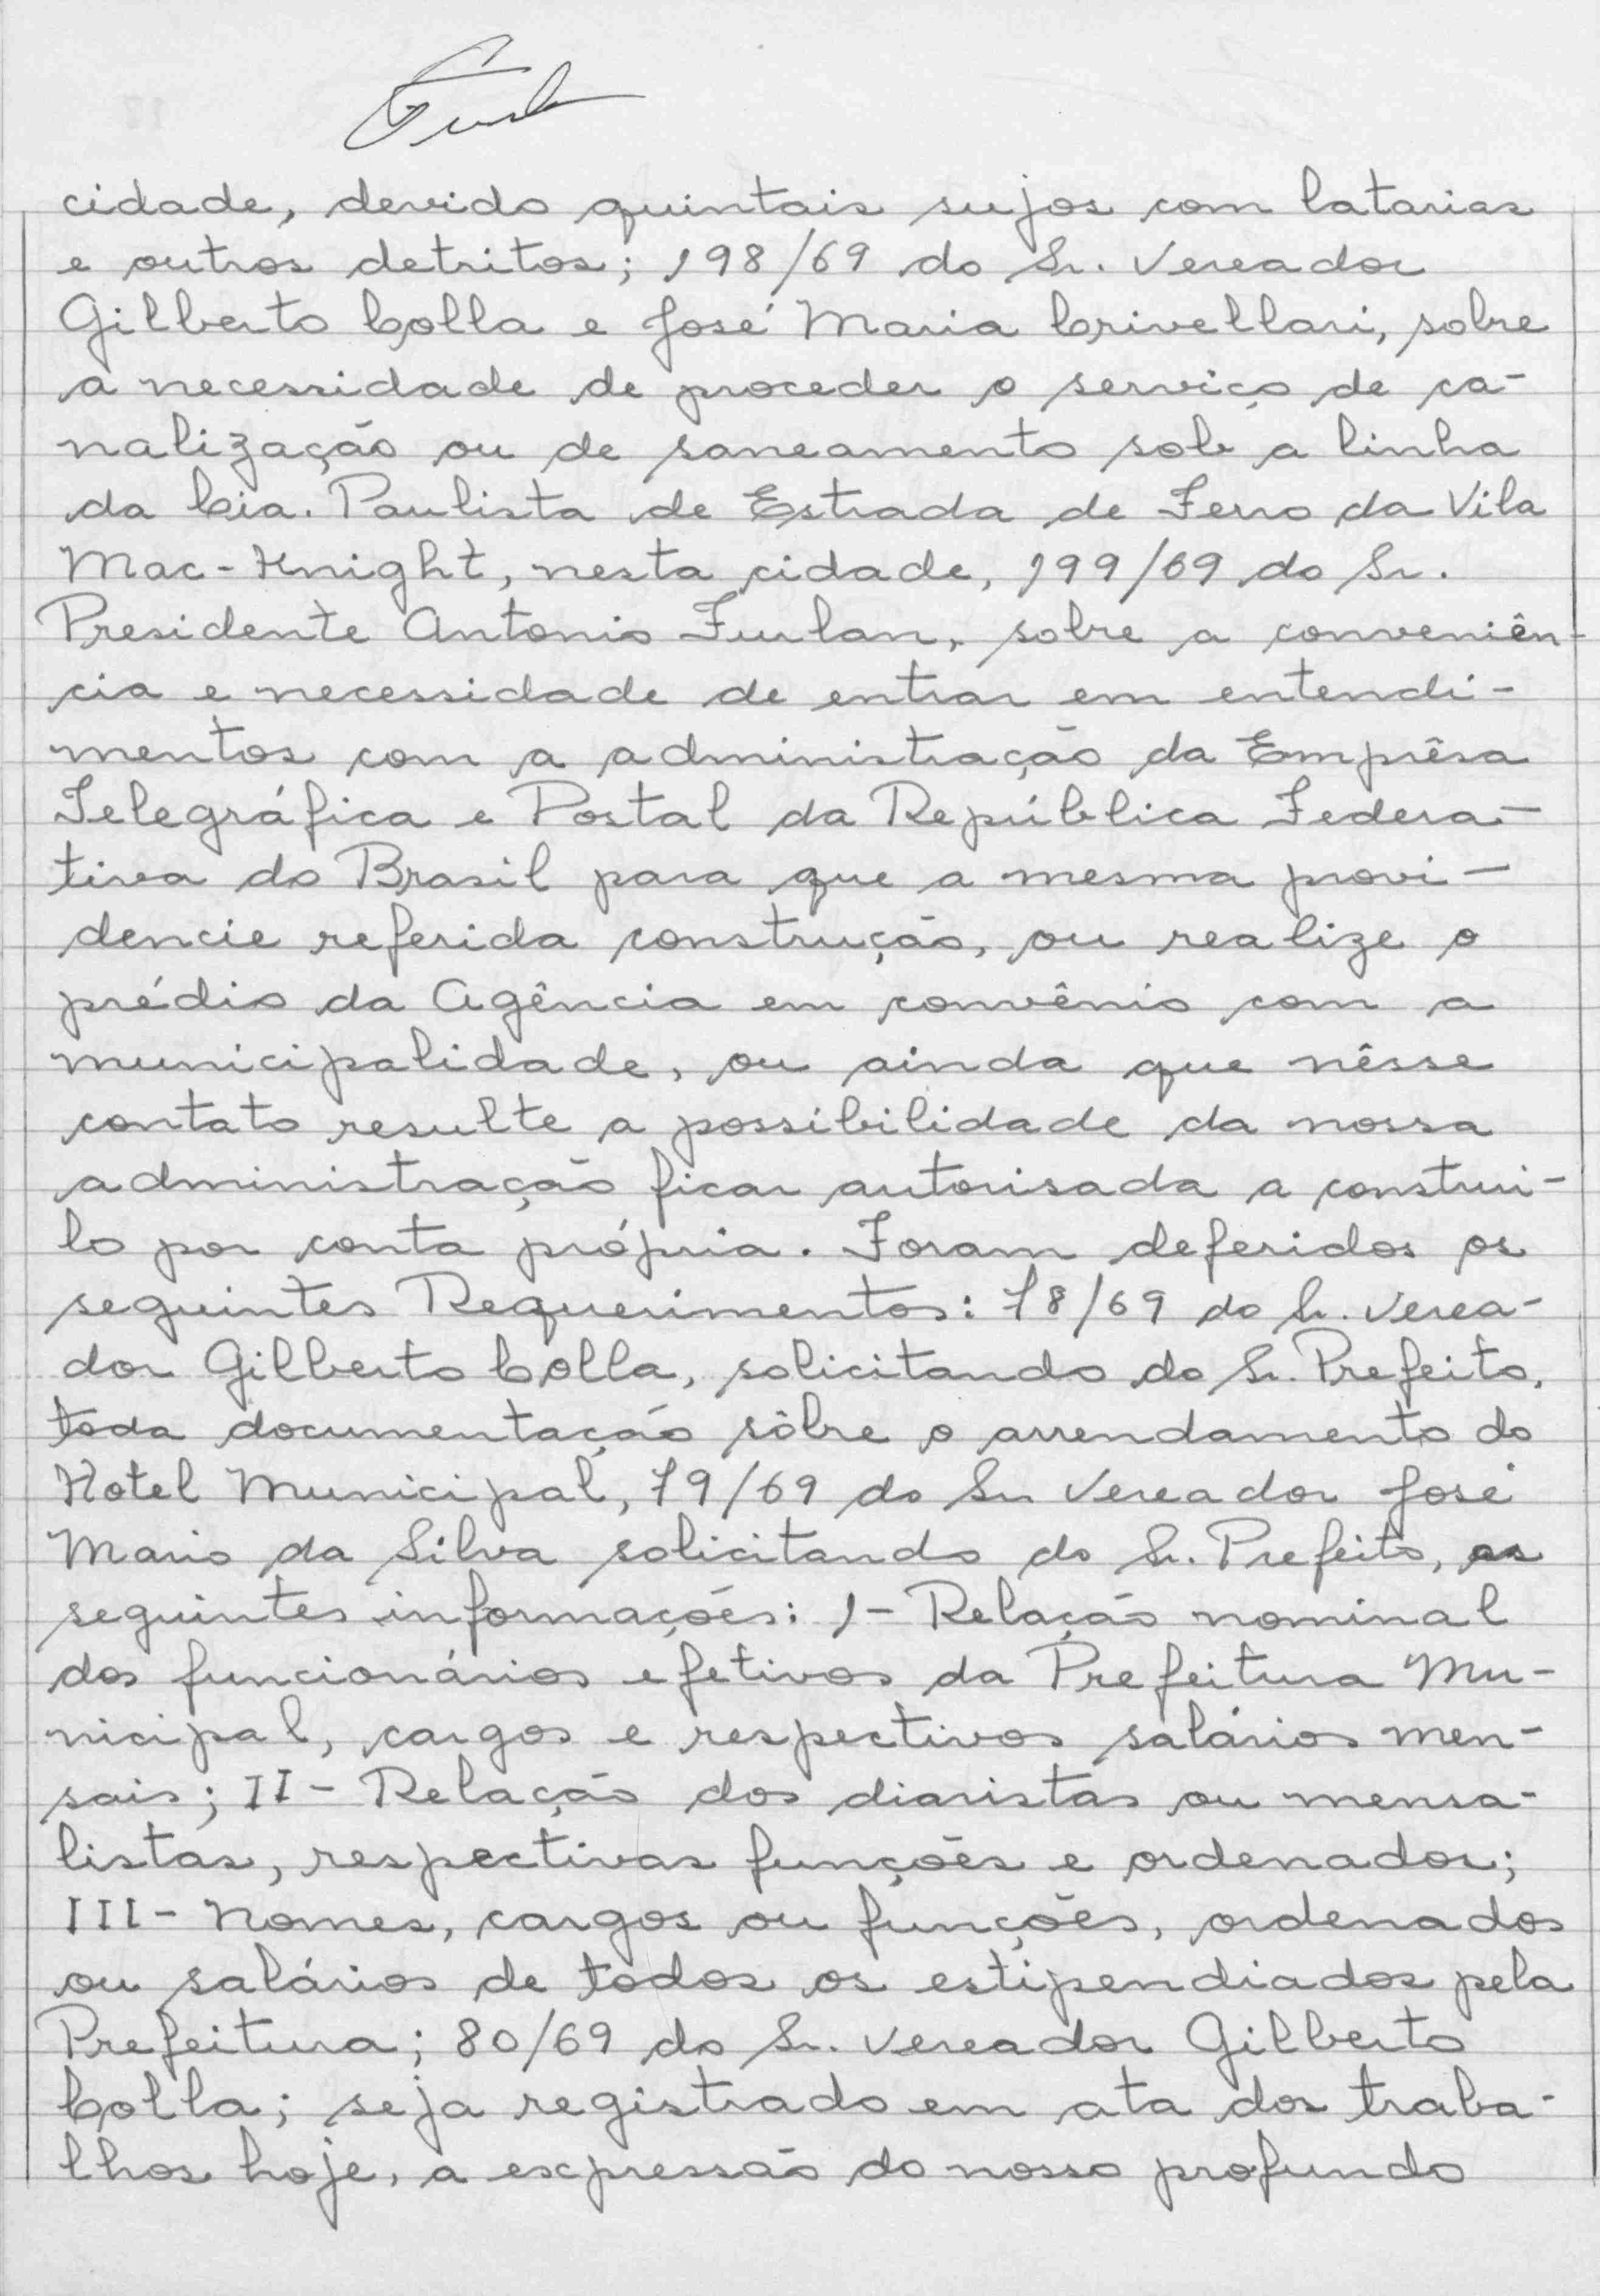 cidade, devido quintais sujos com latarias
e outros detritos; 198/69 do Sr. Vereador
Gilberto Colla e José Maria Crivellari, sobre
a necessidade de proceder o serviço de ca-
nalização ou de saneamento sob a linha
da Cia. Paulista de Estrada de Ferro da Vila
Mac-Knight, nesta cidade, 199/69 do Sr.
Presidente Antonio Furlan, sobre a conveniên-
cia e necessidade de entrar em entendi-
mentos com a administração da Emprêsa
Telegráfica e Postal da República Federa-
tiva do Brasil para que a mesma provi-
dencie referida construção, ou realize o
prédio da Agência em convênio com a
municipalidade, ou ainda que nêsse
contato resulte a possibilidade da nossa
administração ficar autorisada a construi-
lo por conta própria. Foram deferidos os
seguintes Requerimentos: 78/69 do Sr. Verea-
dor Gilberto Colla, solicitando do Sr. Prefeito,
toda documentação sôbre o arrendamento do
Hotel Municipal, 79/69 do Sr Vereador José
Mario da Silva solicitando do Sr. Prefeito, as
seguintes informações: 1- Relação nominal
dos funcionários efetivos da Prefeitura Mu-
nicipal, cargos e respectivos salários men-
sais; II- Relação dos diaristas ou mensa-
listas, respectivas funções e ordenados;
III- Nomes, cargos ou funções, ordenados
ou salários de todos os estipendiados pela
Prefeitura; 80/69 do Sr. Vereador Gilberto
Colla; seja registrado em ata dos traba-
lhos hoje, a expressão do nosso profundo